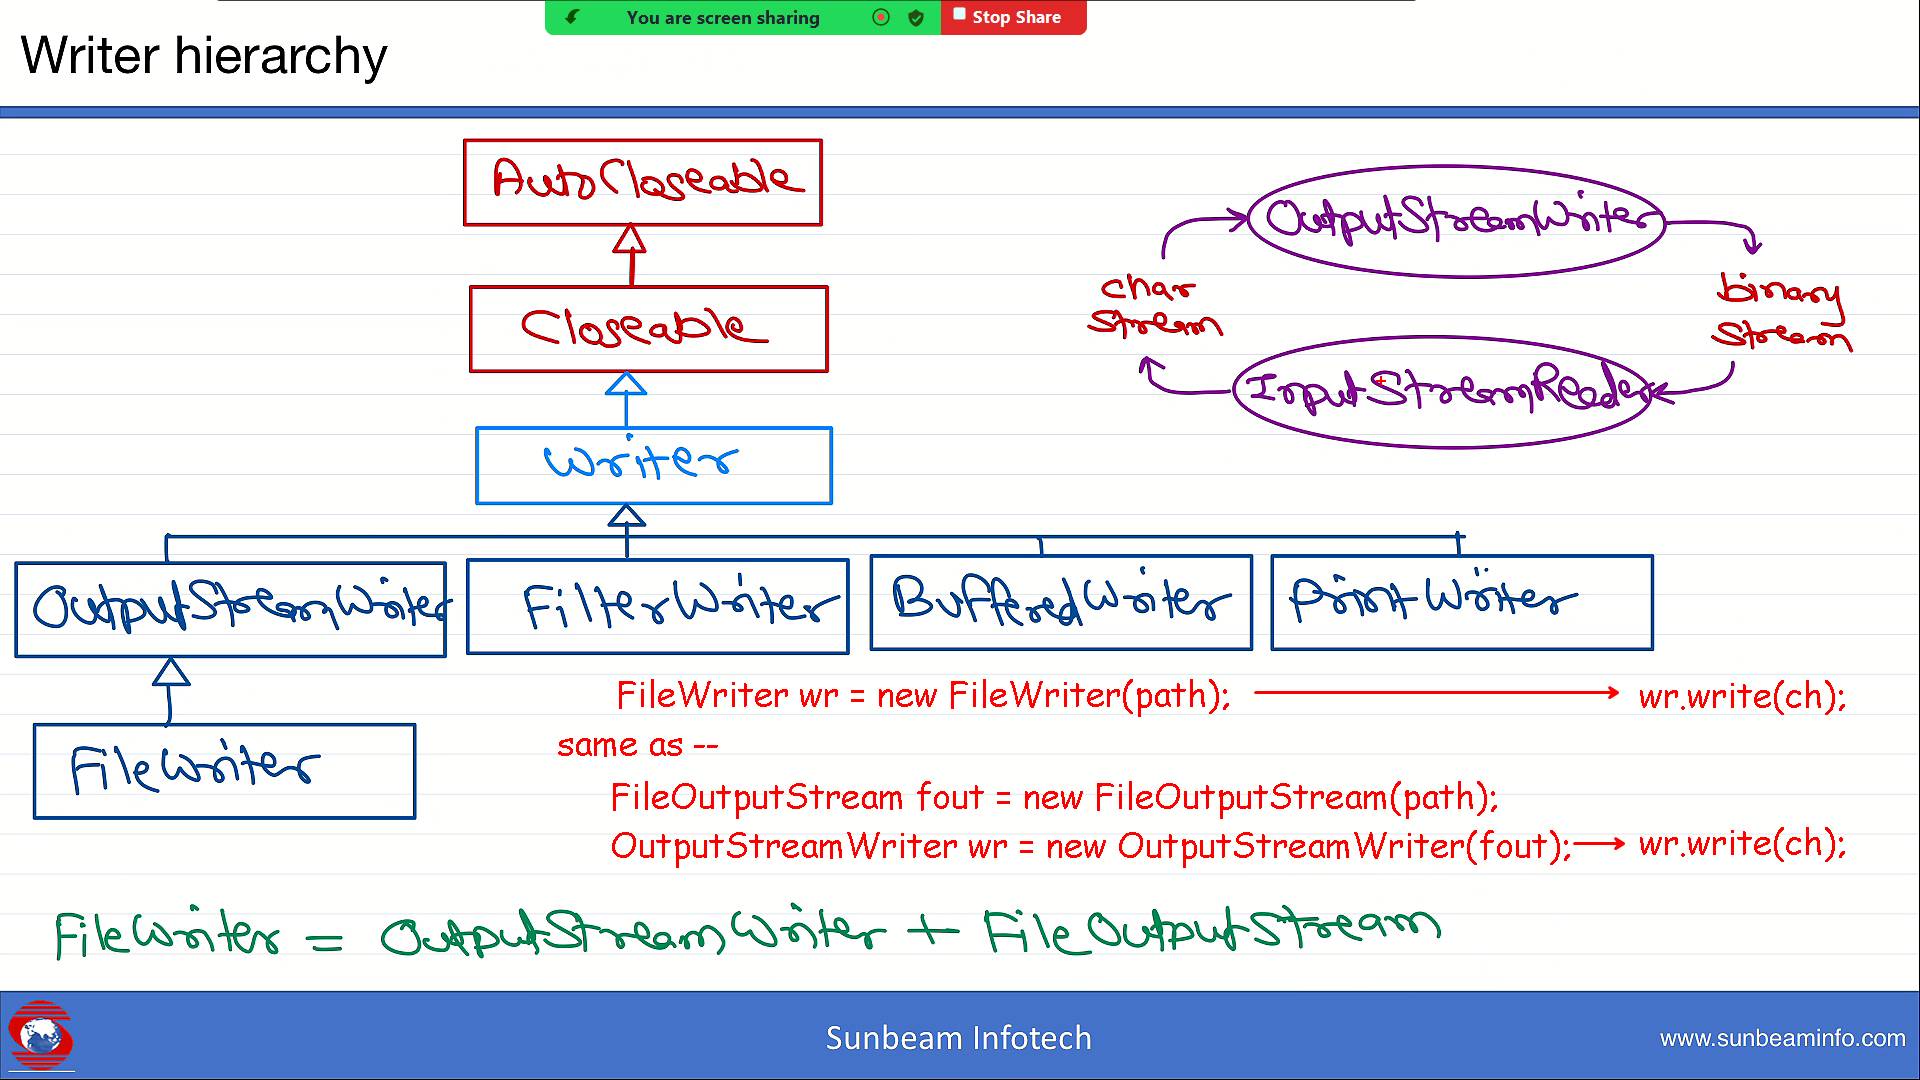 You are screen sharing
Stop Share
Writer hierarchy
AutoCloseable
Closeable
Writer
OutputStreamWriter
FilterWriter
BufferedWriter
PrintWriter
FileWriter
OutputStreamWriter
char
stream
binary
stream
InputStreamReader
FileWriter wr = new FileWriter(path);
wr.write(ch);
same as --
FileOutputStream fout = new FileOutputStream(path);
OutputStreamWriter wr = new OutputStreamWriter(fout);
wr.write(ch);
FileWriter = OutputStreamWriter + FileOutputStream
Sunbeam Infotech
www.sunbeaminfo.com